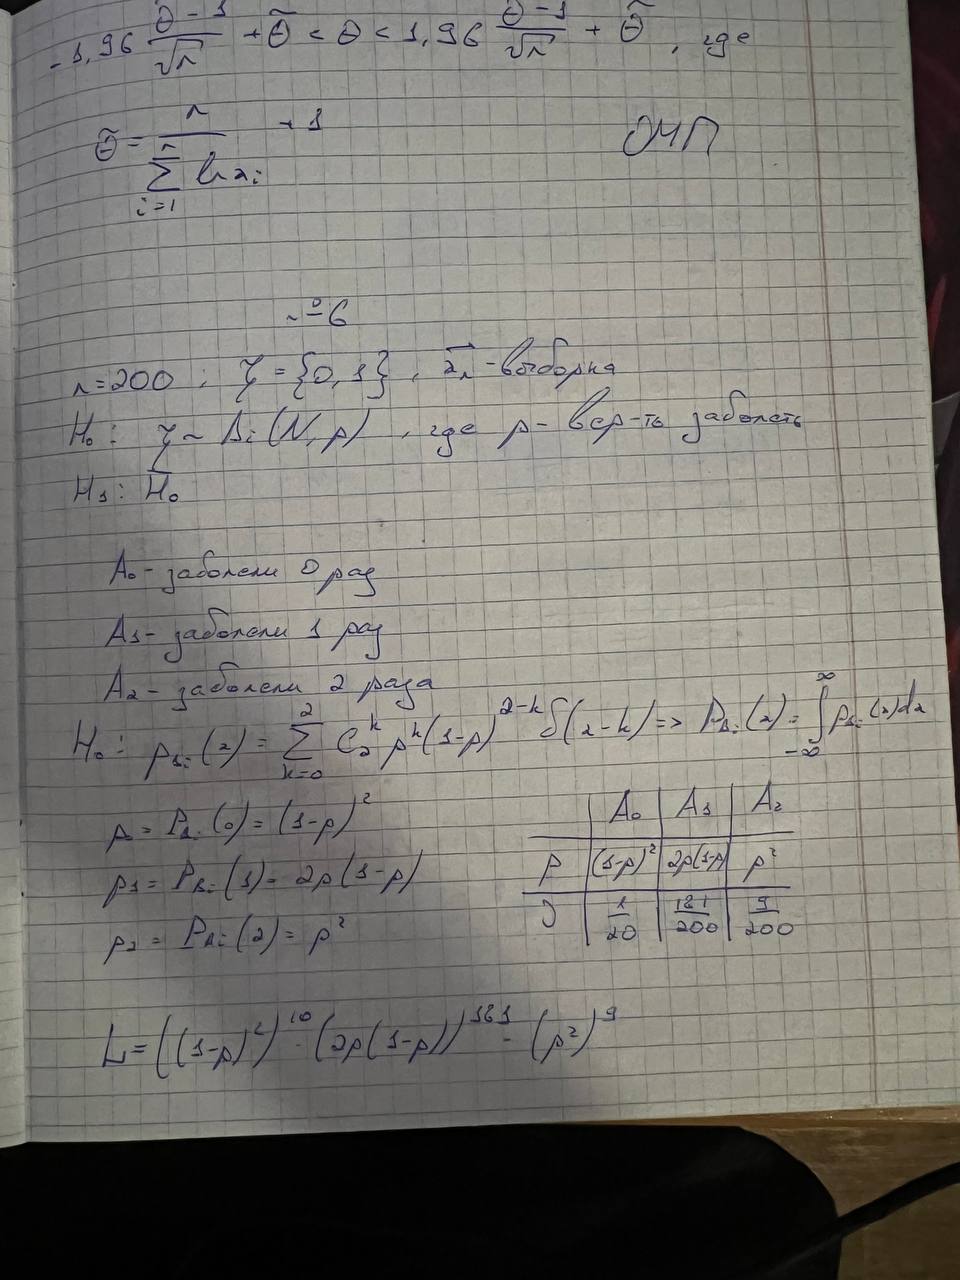 -1,96 (θ̃-1)/√n + θ̃ < θ < 1,96 (θ̃-1)/√n + θ̃, где
θ̃ = n/(∑_{i=1}^{n} ln x_i) + 1
ОМП
№6
n=200; ξ={0,1}, x⃗_n - выборка
H₀: ξ ~ Bi(N, p), где p - вер-ть заболеть
H₁: H̅₀
A₀ - заболели 0 раз
A₁ - заболели 1 раз
A₂ - заболели 2 раза
H₀: p_{Bi}(x) = ∑_{k=0}^{2} C₂^k p^k (1-p)^{2-k} δ(x-k) => P_{Bi}(x) = ∫_{-∞}^{∞} p_{Bi}(x)dx
p₀ = P_{Bi}(0) = (1-p)²
p₁ = P_{Bi}(1) = 2p(1-p)
p₂ = P_{Bi}(2) = p²
A₀ A₁ A₂
p (1-p)² 2p(1-p) p²
ν 1/20 181/200 9/200
L = ((1-p)²)^{10} · (2p(1-p))^{181} · (p²)^9